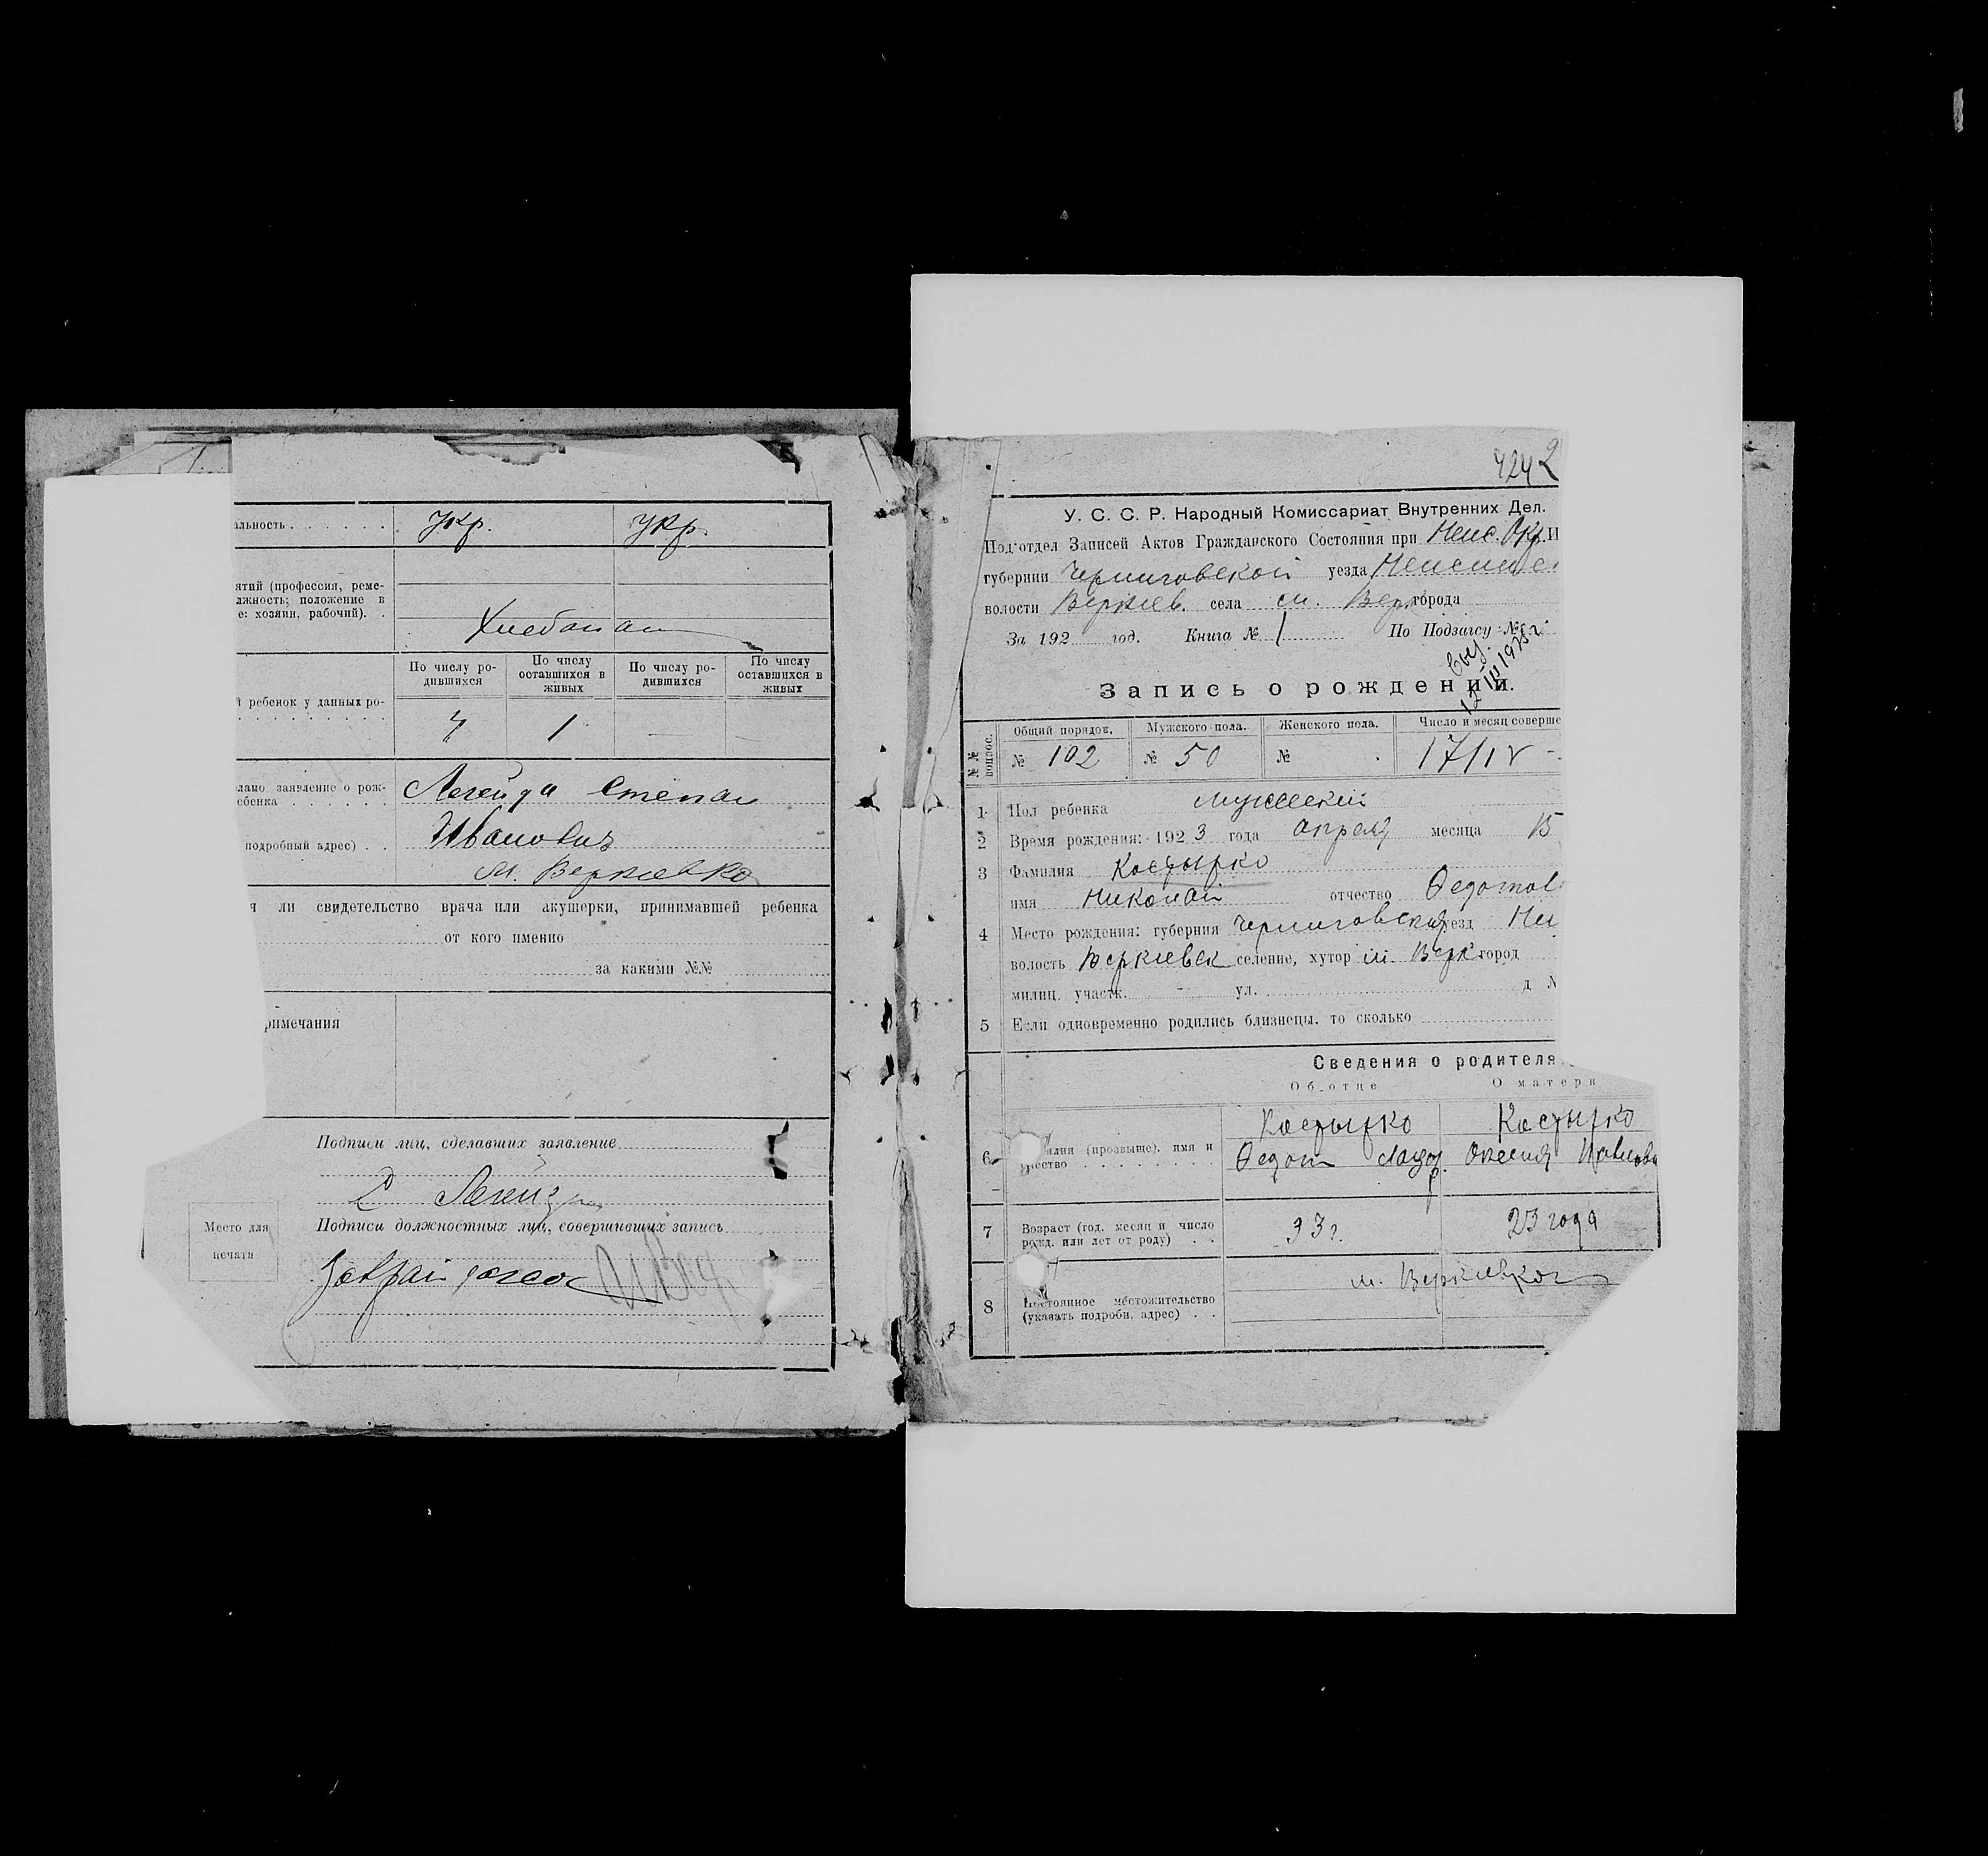 альность . . . . . . укр. укр.
ятий (профессия, реме-
лжность; положение в
е: хозяин, рабочий). .
По числу ро-
дившихся
По числу
оставшихся в
живых
По числу ро-
дившихся
По числу
оставшихся в
живых
й ребенок у данных ро-
1 — —
лано заявление о рож-
ебенка . . . . . . Легейда Степан
подробный адрес) . . Иванович
м. Веркиевка
я ли свидетельство врача или акушерки, принимавшей ребенка
от кого именно
за какими №№
римечания
Подписи лиц, сделавших заявление
Легейда
Подписи должностных лиц, совершивших запись
Место для
печати
Завзагсом
4242
У. С. С. Р. Народный Комиссариат Внутренних Дел.
Под'отдел Записей Актов Гражданского Состояния при Неж. Окр. И
губернии Черниговской уезда
волости Веркиев. села м. Верк города
За 192 год. Книга № 1 По Подзагсу №
Запись о рождении.
№№ вопрос.
Общий порядов. Мужского пола. Женского пола. Число и месяц соверше
№ 102 № 50 № 17/IV -
1 Пол ребенка мужеский
2 Время рождения: 1923 года апреля месяца 15
3 Фамилия Костырко
имя Николай отчество Федотов
4 Место рождения: губерния Черниговская уезд Не
волость Веркиевск селение, хутор м. Верк город
милиц. участк. - ул. д №
5 Если одновременно родились близнецы, то сколько
Сведения о родителя
Об отце О матери
Костырко Костырко
6 илия (прозвыще), имя и
чество . . . . . . . . Федот Лазар. Оксения Павловн
7 Возраст (год, месяц и число
рожд. или лет от роду) . . 33 г. 23 года
м. Веркиевка
8 Постоянное местожительство
(указать подробн. адрес) . .